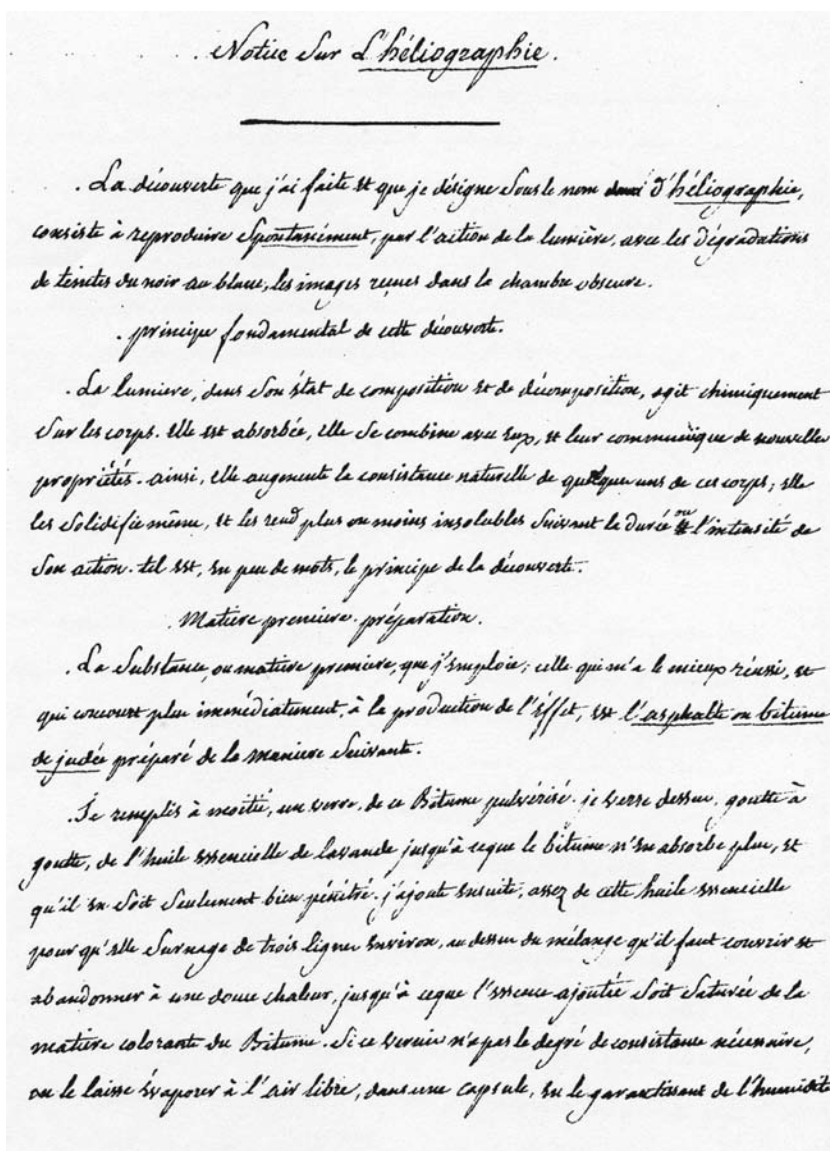 Notice sur L'héliographie.
La découverte que j'ai faite et que je désigne sous le nom d'héliographie,
consiste à reproduire spontanément, par l'action de la lumière, avec les dégradations
de teintes du noir au blanc, les images reçues dans la chambre obscure.
principe fondamental de cette découverte.
La lumiere, dans son état de composition et de décomposition, agit chimiquement
sur les corps. elle est absorbée, elle se combine avec eux, et leur communique de nouvelles
propriétés. ainsi, elle augmente la consistance naturelle de quelques uns de ces corps; elle
les solidifie même, et les rend plus ou moins insolubles suivant la durée ou l'intensité de
son action. tel est, en peu de mots, le principe de la découverte.
Matiere premiere. préparation.
La substance, ou matiere premiere, que j'emploie; celle qui m'a le mieux réussi, et
qui concourt plus immédiatement, à la production de l'éffet, est l'asphalte ou bitume
de judée préparé de la maniere suivante.
Je remplis à moitié, un verre, de ce Bitume pulvérisé. je verse dessus, goutte à
goutte, de l'huile essencielle de lavande jusqu'à ceque le bitume n'en absorbe plus, et
qu'il en soit seulement bien pénétré. j'ajoute ensuite, assez de cette huile essencielle
pour qu'elle surnage de trois lignes environ, au dessus du mélange qu'il faut couvrir et
abandonner à une douce chaleur, jusqu'à ceque l'essence ajoutée soit saturée de la
matiere colorante du Bitume. Si ce vernis n'a pas le degré de consistance nécessaire,
on le laisse évaporer à l'air libre, dans une capsule, en le garantissant de l'humidité